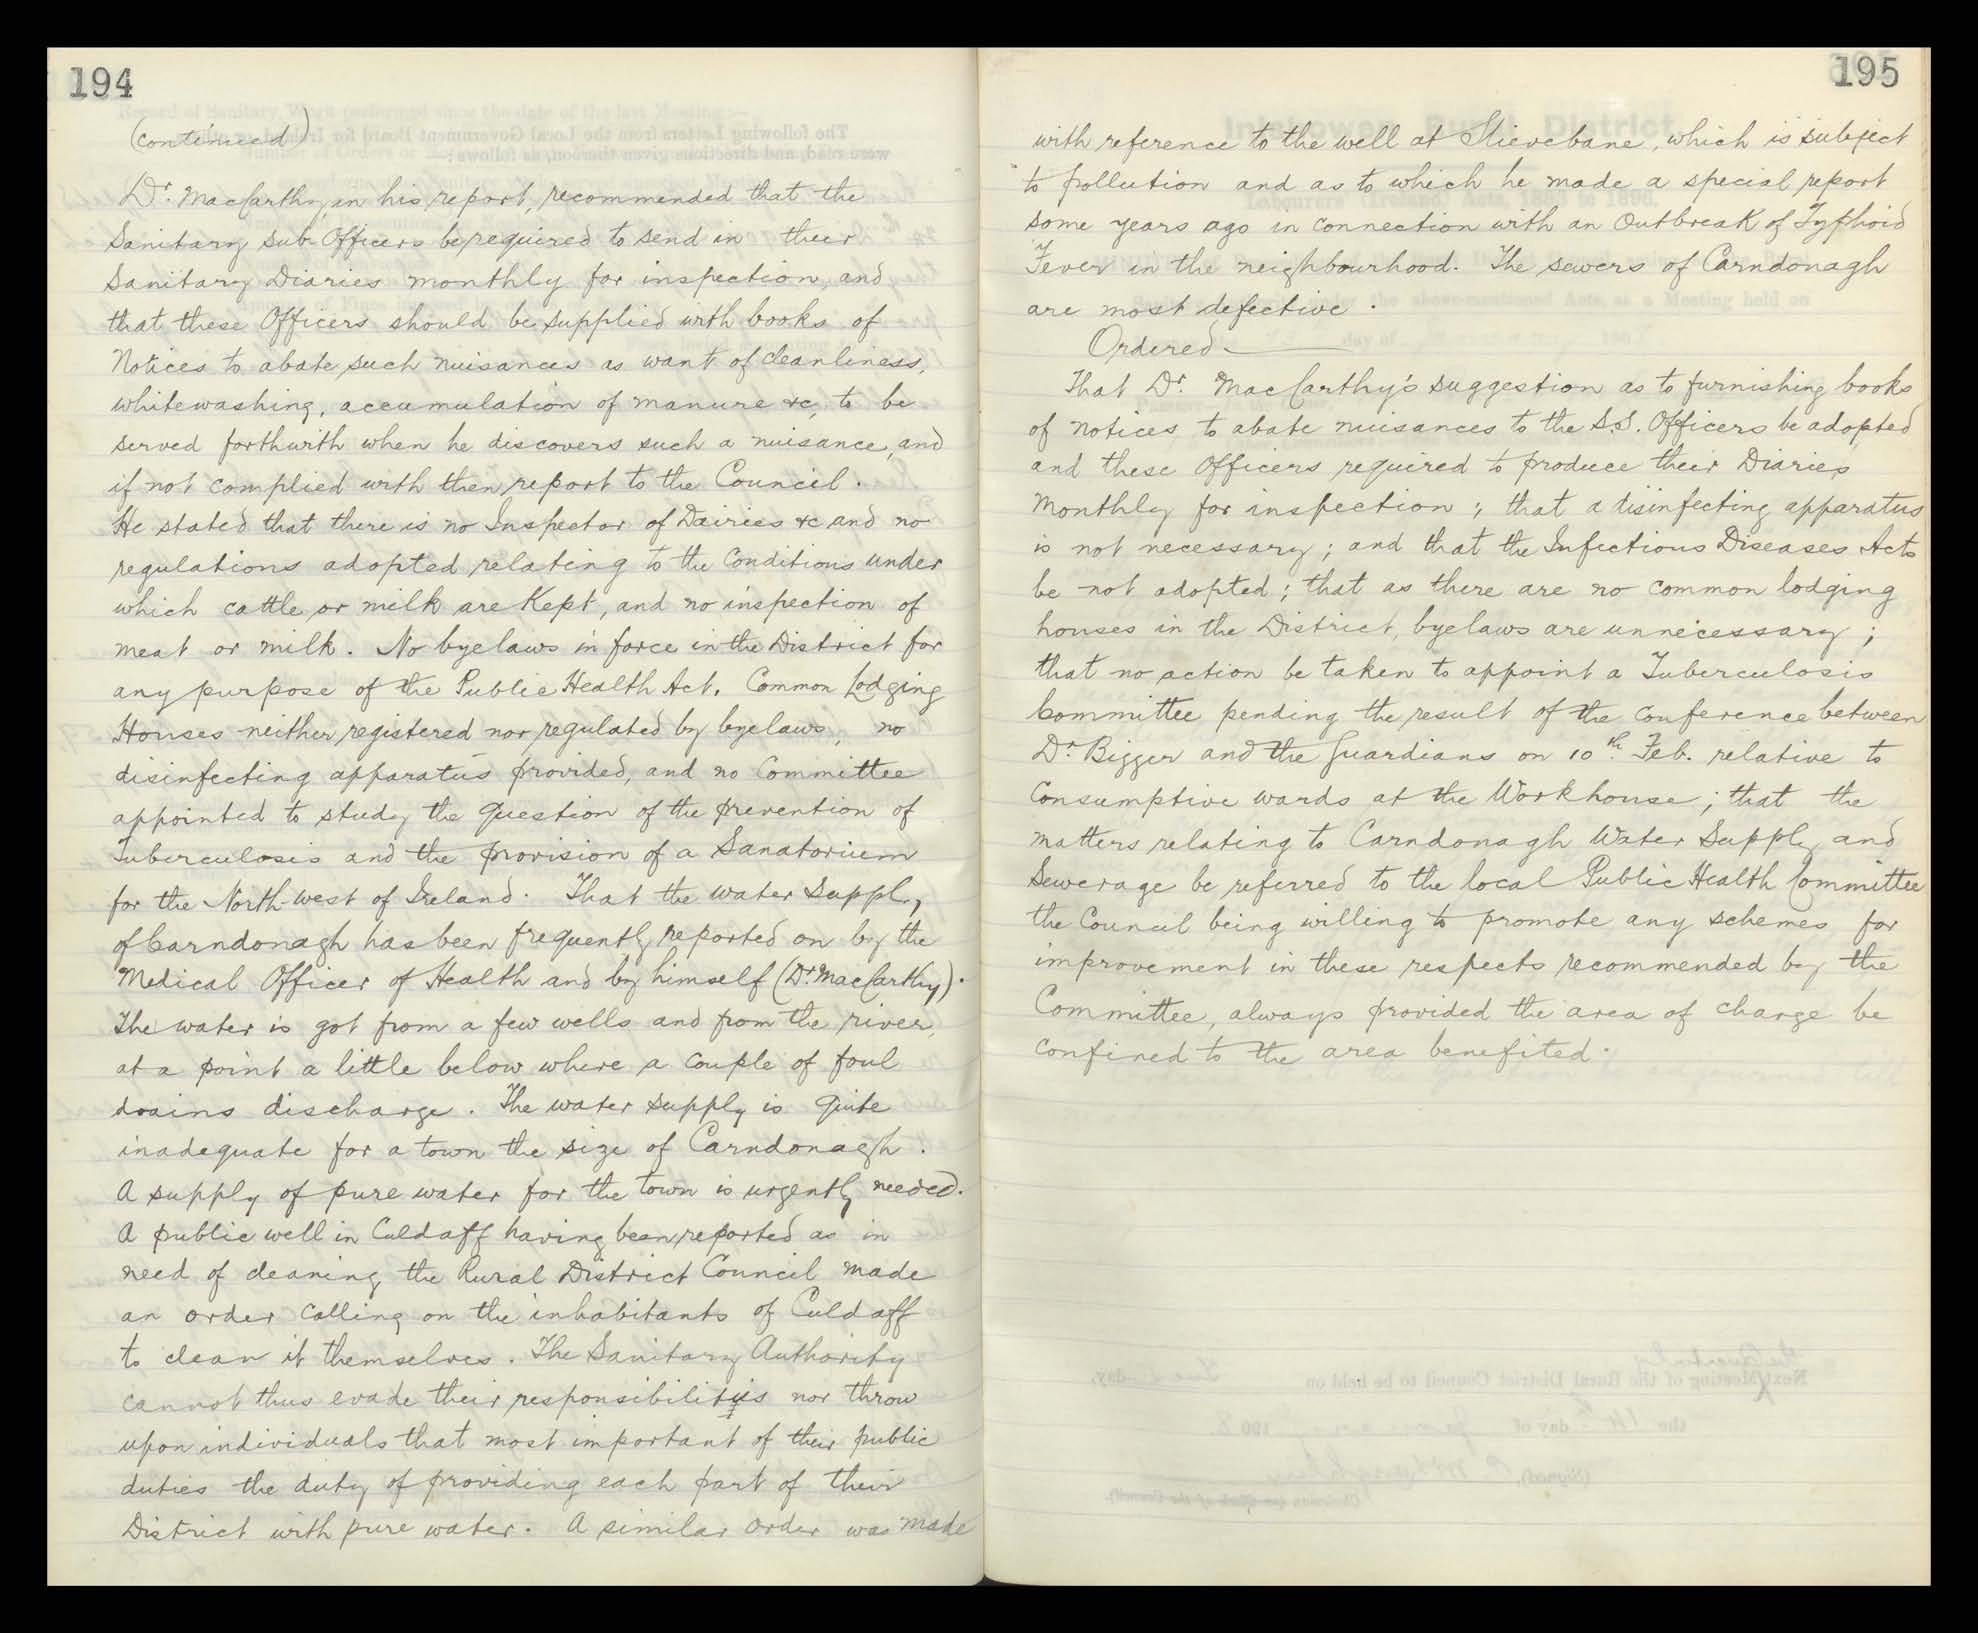 194
(continued)
Dr. MacCarthy, in his report, recommended that the
Sanitary Sub-Officers be required to send in their
Sanitary Diaries monthly for inspection, and
that these Officers should be supplied with books of
Notices to abate such nuisances as want of cleanliness,
whitewashing, accumulation of manure &c, to be
served forthwith when he discovers such a nuisance, and
if not complied with then report to the Council.
He stated that there is no Inspector of Dairies &c and no
regulations adopted relating to the conditions under
which cattle or milk are kept, and no inspection of
meat or milk. No byelaws in force in the District for
any purpose of the Public Health Act. Common Lodging
Houses neither registered nor regulated by byelaws, no
disinfecting apparatus provided, and no Committee
appointed to study the question of the prevention of
Tuberculosis and the provision of a Sanatorium
for the North-west of Ireland. That the water supply
of Carndonagh has been frequently reported on by the
Medical Officer of Health and by himself (Dr. MacCarthy).
The water is got from a few wells and from the river,
at a point a little below where a couple of foul
drains discharge. The water supply is quite
inadequate for a town the size of Carndonagh.
A supply of pure water for the town is urgently needed.
A public well in Culdaff having been reported as in
need of cleaning the Rural District Council made
an order calling on the inhabitants of Culdaff
to clean it themselves. The Sanitary Authority
cannot thus evade their responsibilities nor throw
upon individuals that most important of their public
duties the duty of providing each part of their
District with pure water. A similar order was made
195
with reference to the well at Slievebane, which is subject
to pollution and as to which he made a special report
some years ago in connection with an Outbreak of Typhoid
Fever in the neighbourhood. The sewers of Carndonagh
are most defective.
Ordered
That Dr. MacCarthy's suggestion as to furnishing books
of notices to abate nuisances to the S.S. Officers be adopted
and these Officers required to produce their Diaries
monthly for inspection; that a disinfecting apparatus
is not necessary; and that the Infectious Diseases Acts
be not adopted; that as there are no common lodging
houses in the District, byelaws are unnecessary;
that no action be taken to appoint a Tuberculosis
Committee pending the result of the conference between
Dr. Bigger and the Guardians on 10th. Feb. relative to
Consumptive wards at the Workhouse; that the
matters relating to Carndonagh Water Supply and
Sewerage be referred to the local Public Health Committee
the Council being willing to promote any schemes for
improvement in these respects recommended by the
Committee, always provided the area of charge be
confined to the area benefited.